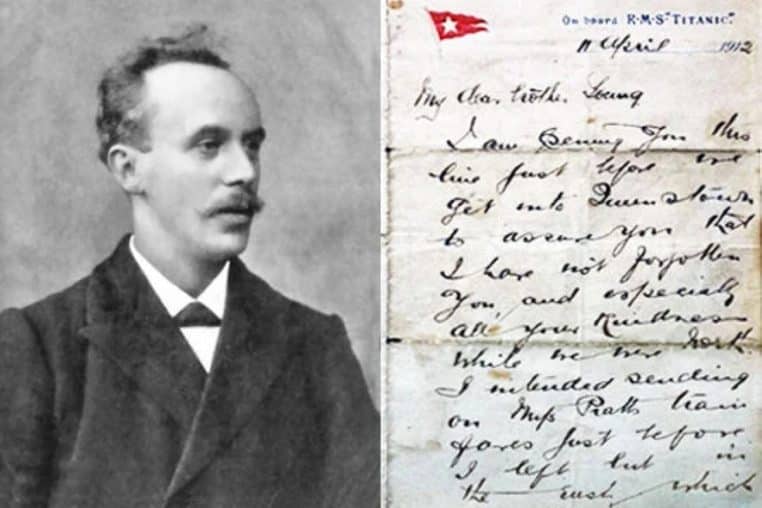 On board R·M·S "TITANIC."
11 April 1912
My dear brother Young
I am penning you this
line just before we
get into Queenstown
to assure you that
I have not forgotten
you, and especially
all your kindness
while we were North.
I intended sending
on Miss Pratts train
fares just before
I left but in
the rush which